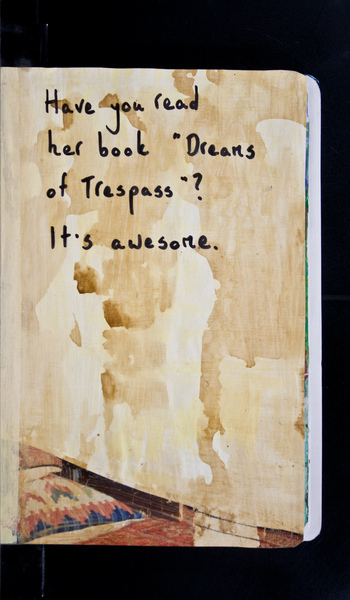 Have you read
her book "Dreams
of Trespass"?
It's awesome.